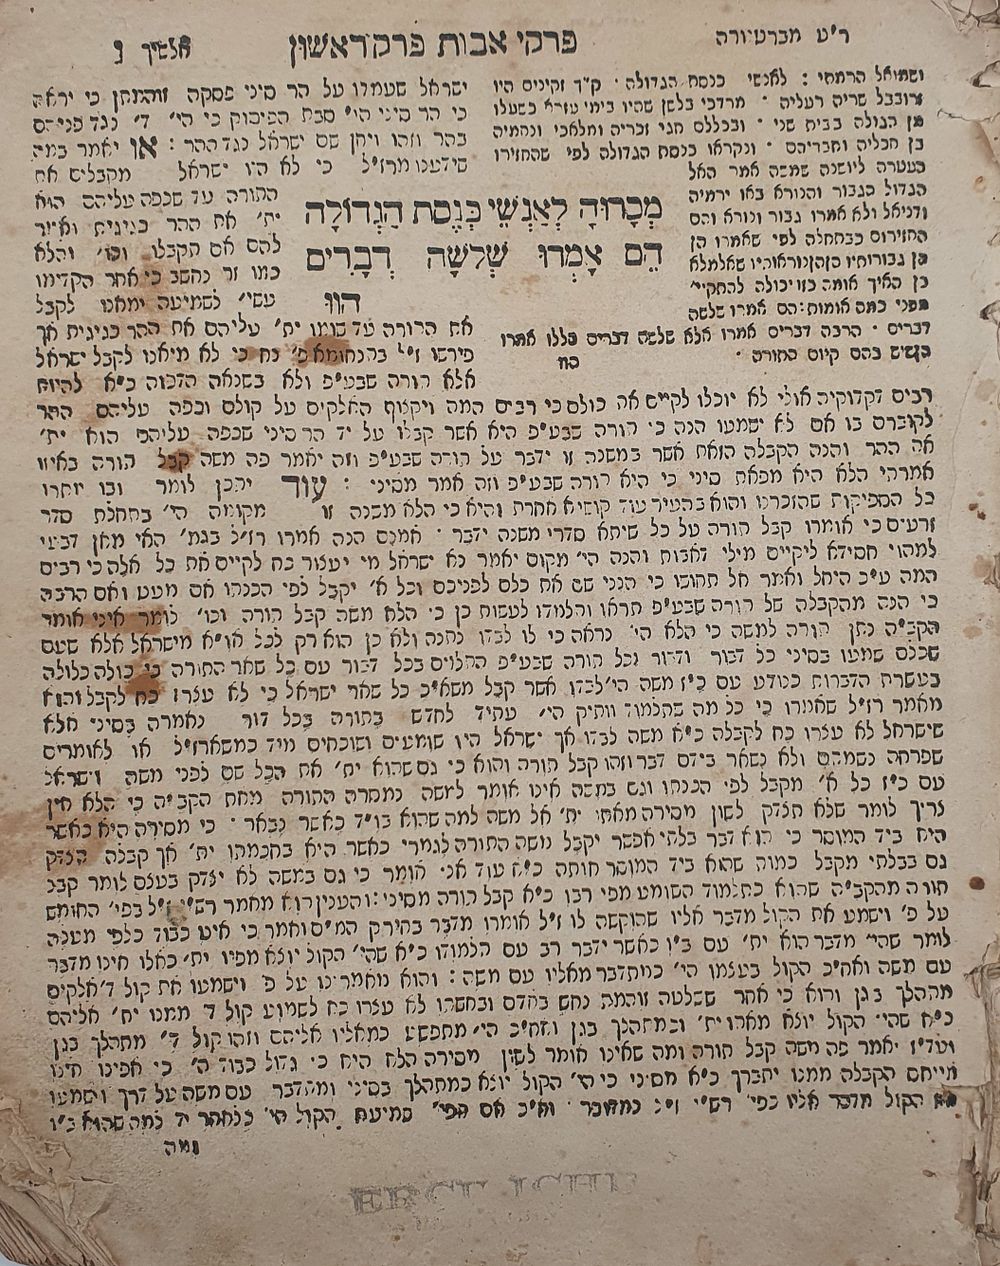 ר"ט מברטנורה
פרקי אבות פרק ראשון
אלשיך
ושמואל הרמתי : לאנשי כנסת הגדולה · ק"ך זקינים היו
זרובבל שריה רעליה · מרדכי בלשן שהיו בימי עזרא כשעלו
מן הגולה בבית שני · ובכללם חגי זכריה ומלאכי ונחמיה
בן חכליה וחבריהם · ונקראו כנסת הגדולה לפי שהחזירו
העטרה ליושנה שמשה אמר האל
הגדול הגבור והנורא באו ירמיה
ודניאל ולא אמרו גבור ונורא והם
החזירום כבתחלה לפי שאמרו הן
הן גבורותיו הן הן נוראותיו שאלמלא
כן האיך אומה כזו יכולה להתקיי'
מפני כמה אומות : הם אמרו שלשה
דברים · הרבה דברים אמרו אלא שלשה דברים כללו אמרו
שיש בהם קיום התורה ·
הוו
מְסָרוּהָ לְאַנְשֵׁי כְּנֶסֶת הַגְּדוֹלָה
הֵם אָמְרוּ שְׁלֹשָׁה דְבָרִים
הֱווּ
ישראל שעמדו על הר סיני פסקה זוהמתן כי יראה
כי הר סיני הי' סבת הפיסוק כי הי' ד' נגד פניהם
בהר וזהו ויחן שם ישראל נגד ההר : או יאמר במה
שידענו מרז"ל כי לא היו ישראל מקבלים את
התורה עד שכפה עליהם הוא
ית' את ההר כגיגית ואמר
להם אם תקבלו וכו' והלא
כמו זר נחשב כי אחר הקדימו
עשי' לשמיעה ימאנו לקבל
את התורה עד שומו ית' עליהם את ההר כגיגית אך
פירשו ז"ל בתנחומא פ' נח כי לא מיאנו לקבל ישראל
אלא תורה שבע"פ ולא בשנאה הדבה כ"א להיות
רבים דקדוקיה אולי לא יוכלו לקיים את כולם כי רבים המה ויקצוף האלקים על קולם וכפה עליהם ההר
לקוברם בו אם לא ישמעו הנה כי תורה שבע"פ היא אשר קבלו על יד הר סיני שכפה עליהם הוא ית'
את ההר והנה הקבלה הזאת אשר במשנה זו ידבר על תורה שבע"פ וזה יאמר פה משה קבל תורה באיזו
אמרתי הלא היא מפאת סיני כי היא תורה שבע"פ וזה אמר מסיני : עוד יתכן לומר ובו יותרו
כל הספיקות שהזכרנו והוא בהעיר עוד קושיא אחרת והיא כי הלא משנה זו מקומה הי' בתחלת סדר
זרעים כי אומרו קבל תורה על כל שיתא סדרי משנה ידבר · אמנם הנה אמרו רז"ל בגמ' האי מאן דבעי
למהוי חסידא ליקיים מילי דאבות והנה הי' מקום יאמר נא ישראל מי יעצור כח לקיים את כל אלה כי רבים
המה ע"כ היחל ואמר אל תחושו כי הנני שם את כלם לפניכם וכל א' יקבל לפי הכנתו אם מעט ואם הרבה
כי הנה מהקבלה של תורה שבע"פ תראו והלמדו לעשות כן כי הלא משה קבל תורה וכו' לומר איני אומר
הקב"ה נתן תורה למשה כי הלא הי' נראה כי לו לבדו נתנה ולא כן הוא רק לכל או"א מישראל אלא שעם
שכלם שמעו בסיני כל דבור ודבור וכל תורה שבע"פ התלוים בכל דבור עם כל שאר התורה כי כולה כלולה
בעשרת הדברות כנודע עם כ"ז משה הי' לבדו אשר קבל משא"כ כל שאר ישראל כי לא עצרו כח לקבל והוא
מאמר רז"ל שאמרו כי כל מה שתלמוד וותיק הי' עתיד לחדש בתורה בכל דור נאמרה בסיני אלא
שישראל לא עצרו כח לקבלה כ"א משה לבדו אך ישראל היו שומעים ושוכחים מיד כמשארז"ל או לאומרים
שפרחה נשמתם ולא נשאר בידם דבר וזהו קבל תורה והוא כי גם שהוא ית' את הכל שם לפני משה וישראל
עם כ"ז כל א' מקבל לפי הכנתו וגם במשה אינו אומר למשה נמסרה התורה מאת הקב"ה כי הלא אין
צריך לומר שלא תצדק לשון מסירה מאתו ית' אל משה למה שהוא בו"ד כאשר נבאר · כי מסירה היא כאשר
היא ביד המוסר כי הוא דבר בלתי אפשר יקבל משה התורה לגמרי כאשר היא בחכמתו ית' אך קבלה תצדק
גם בבלתי מקבל כמות שהוא ביד המוסר אותה כ"א עוד אני אומר כי גם במשה לא יצדק בעצם לומר קבל
תורה מהקב"ה שהוא כתלמוד השומע מפי רבו כ"א קבל תורה מסיני : והענין הוא מאמר רש"י ז"ל בפי' החומש
על פ' וישמע את הקול מדבר אליו שהוקשה לו ז"ל אומרו מדבר בחירק המ"ם ואמר כי אינו כבוד כלפי מעלה
לומר שהי' מדבר הוא ית' עם ב"ו כאשר ידבר רב עם תלמודו כ"א שהי' הקול יוצא מפיו ית' כאלו אינו מדבר
עם משה ואח"כ הקול בעצמו הי' כמתדבר מאליו עם משה : והוא מאמרינו על פ' וישמעו את קול ד' אלקים
מתהלך בגן והוא כי אחר ששלטה זוהמת נחש באדם ובאשתו לא עצרו כח לשמוע קול ד' ממנו ית' אליהם
כ"א שהי' הקול יוצא מאתו ית' ובמתהלך בגן ואח"כ הי' מתפשט כמאליו אליהם וזהו קול ד' מתהלך בגן
ועד"ז יאמר פה משה קבל תורה ומה שאינו אומר לשון מסירה הלא היא כי גדול כבוד ה' כי אפינו אינו
מייחס הקבלה ממנו יתברך כ"א מסיני כי הי' הקול יוצא כמתהלך בסיני ומתדבר עם משה על דרך וישמע
את הקול מדבר אליו כפי' רש"י ז"ל כמדובר · וא"כ אם תפי' שמיעת הקול הי' כנאמר יה למה שהוא ב"ו
ומה